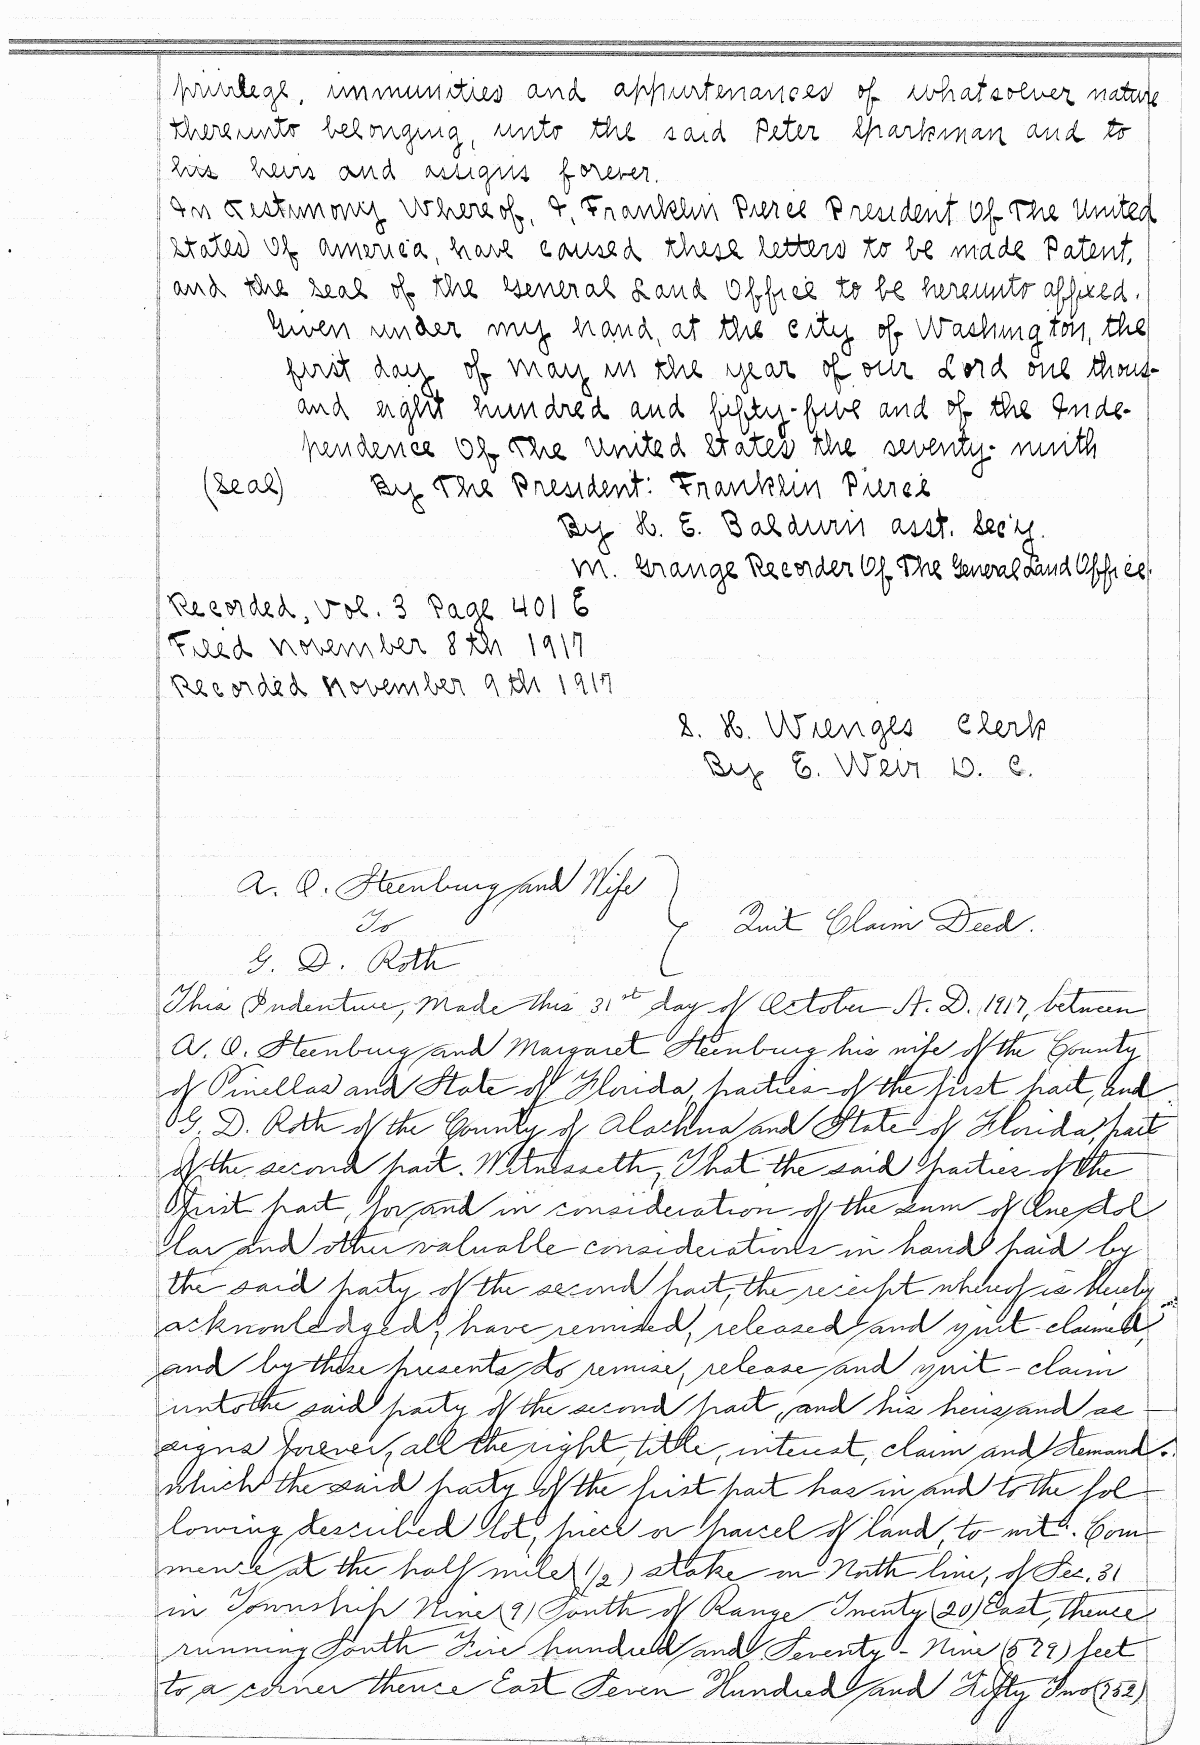 privilege, immunities and appurtenances of whatsoever nature
thereunto belonging, unto the said Peter Sparkman and to
his heirs and assigns forever.
In Testimony Whereof, I, Franklin Pierce President Of The United
States Of America, have caused these letters to be made Patent,
and the Seal of the General Land Office to be hereunto affixed.
Given under my hand, at the city of Washington, the
first day of May in the year of our Lord one thous-
and eight hundred and fifty-five and of the Inde-
pendence Of The United States the seventy-ninth
(Seal) By The President: Franklin Pierce
By H. E. Baldwin asst. Sec'y.
M. Grange Recorder Of The General Land Office.
Recorded, Vol. 3 Page 401 E
Filed November 8th 1917
Recorded November 9th 1917
S. H. Wienges Clerk
By E. Weir D. C.
A. O. Steenburg and Wife
To
Quit Claim Deed.
G. D. Roth
This Indenture, Made this 31st day of October A. D. 1917, between
A. O. Steenburg and Margaret Steenburg his wife of the County
of Pinellas and State of Florida, parties of the first part, and
G. D. Roth of the County of Alachua and State of Florida, part
of the second part. Witnesseth, That the said parties of the
first part, for and in consideration of the sum of One dol
lar and other valuable considerations in hand paid by
the said party of the second part, the receipt whereof is hereby
acknowledged, have remised, released and quit-claimed,
and by these presents do remise, release and quit-claim
unto the said party of the second part, and his heirs and as
signs forever, all the right, title, interest, claim and demand.
which the said party of the first part has in and to the fol
lowing described lot, piece or parcel of land, to-wit: Com
mence at the half mile (1/2) stake on North line, of Sec. 31
in Township Nine (9) South of Range Twenty (20) East, thence
running South Five hundred and Seventy-Nine (579) feet
to a corner thence East Seven Hundred and Fifty Two (752)